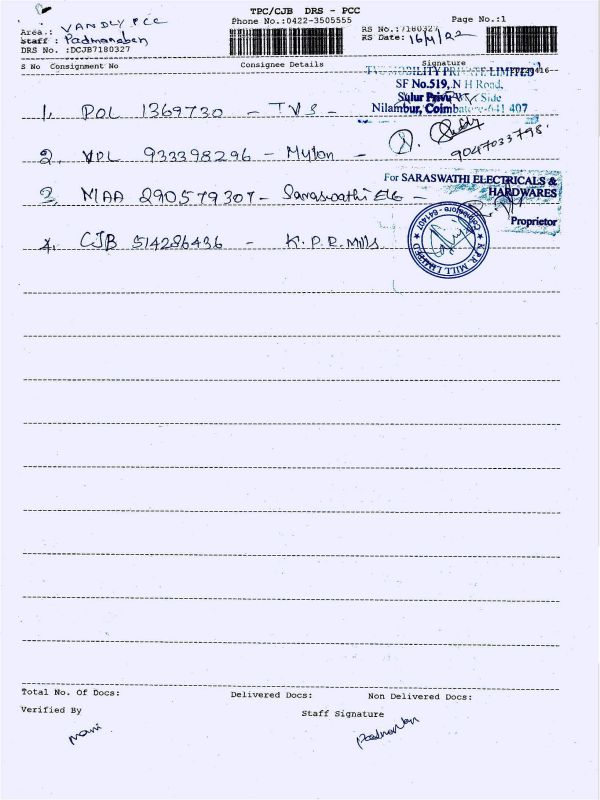 TPC/CJB DRS - PCC
Phone No.:0422-3505555
Page No.:1
Area.: VANDLY PCC
Staff : Padmanaben
DRS No. :DCJB7180327
RS No.:7180327
RS Date: 16/4/22
S No Consignment No Consignee Details Signature
MOBILITY PRIVATE LIMITED
SF No.519, N H Road,
Sulur Side
Nilambur, Coimbatore-641 407
1. POL 1369730 - TVS -
2. VPL 933398296 - Mylon -
9047033798.
For SARASWATHI ELECTRICALS &
HARDWARES
3. MAA 290579307 - Saraswathi Ele -
Proprietor
4. CJB 514286436 - K.P.R. Mills
K.P.R. MILL LIMITED ★ Coimbatore - 641407 ★
Total No. Of Docs: Delivered Docs: Non Delivered Docs:
Verified By Staff Signature
mani